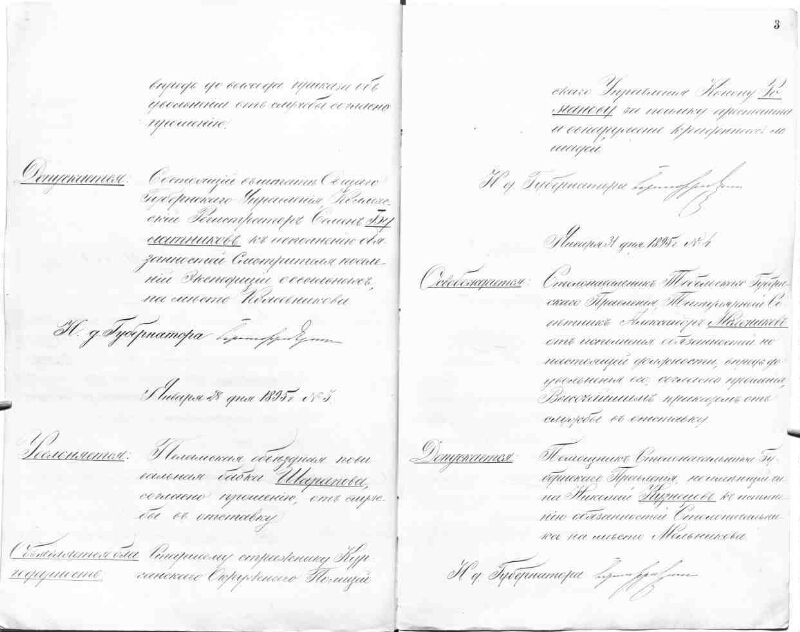 впредь до выхода приказа объ
увольненіи отъ службы согласно
прошенію.
Допускается:
Состоящій въ штатѣ Общаго
Губернскаго Управленія, Коллеж-
скій Регистраторъ Бу
латниковъ къ исполненію обя
занностей Смотрителя
Экспедиціи о ссыльныхъ,
на мѣсто Колесникова
И. д. Губернатора
Января 28 дня 1895 г. № 3.
Увольняется:
Пелымская объѣздная пови
вальная бабка Шарапова,
согласно прошенію, отъ служ-
бы въ отставку
Объявляется бла
годарность
Старшему стражнику Кур
ганскаго Окружнаго Полицей
3
скаго Управленія Ро
манову за поимку арестанта
и обнаруженіе краденыхъ ло
шадей
И. д. Губернатора
Января 31 дня 1895 г. № 4
Освобождается:
Столоначальникъ Тобольскаго Губерн-
скаго Правленія, Титулярный Со
вѣтникъ Александръ Мельниковъ
отъ исполненія обязанностей по
настоящей должности, впредь до
увольненія его, согласно прошенія,
Высочайшимъ приказомъ отъ
службы въ отставку
Допускается:
Помощникъ Столоначальника Гу-
бернскаго Правленія, неимѣющій чи
на Николай Кузнецовъ къ исполне
нію обязанностей Столоначальни
ка на мѣсто Мельникова
И д Губернатора